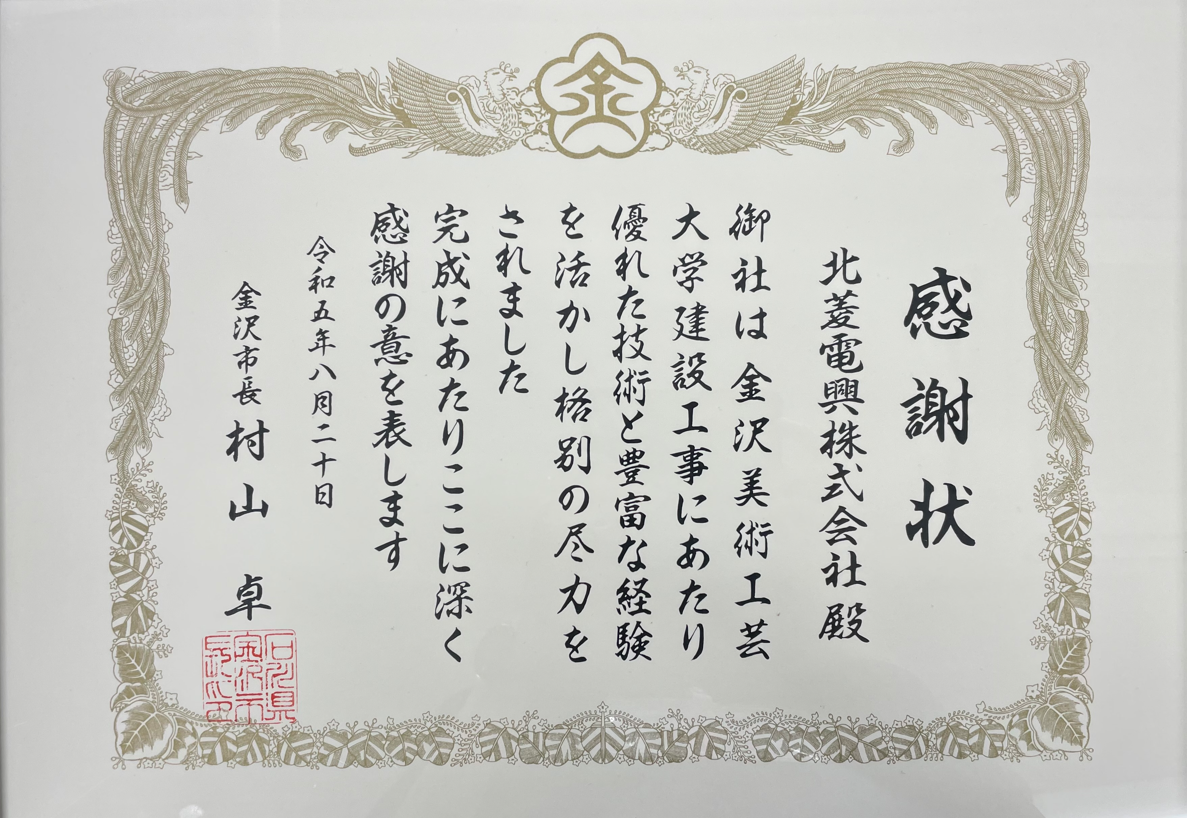 金
感謝状
北菱電興株式会社殿
御社は金沢美術工芸
大学建設工事にあたり
優れた技術と豊富な経験
を活かし格別の尽力を
されました
完成にあたりここに深く
感謝の意を表します
令和五年八月二十日
金沢市長 村山 卓
石川県
金沢市
長之印